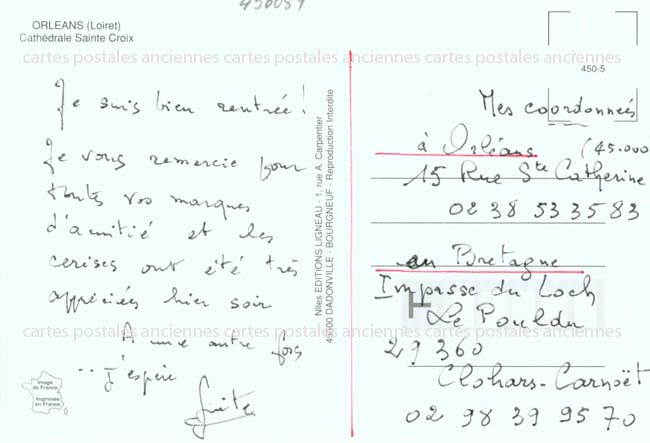 450089
ORLEANS (Loiret)
Cathédrale Sainte Croix
cartes postales anciennes cartes postales anciennes cartes postales anciennes
450-5
Je suis bien rentrée!
Je vous remercie pour
toutes vos marques
d'amitié et les
cerises ont été très
appréciées hier soir
A une autre fois
.. j'espère
Guite
Image
de France
Imprimée
en France
Nlles EDITIONS LIGNEAU - 1, rue A. Carpentier
45300 DADONVILLE - BOURGNEUF - Reproduction Interdite
Mes coordonnées
à Orléans (45.000
15 Rue Ste Catherine
02 38 53 35 83
en Bretagne
Impasse du Loch
Le Pouldu
29360
Clohars-Carnoët
02 98 39 95 70
cartes postales anciennes cartes postales anciennes cartes postales anciennes